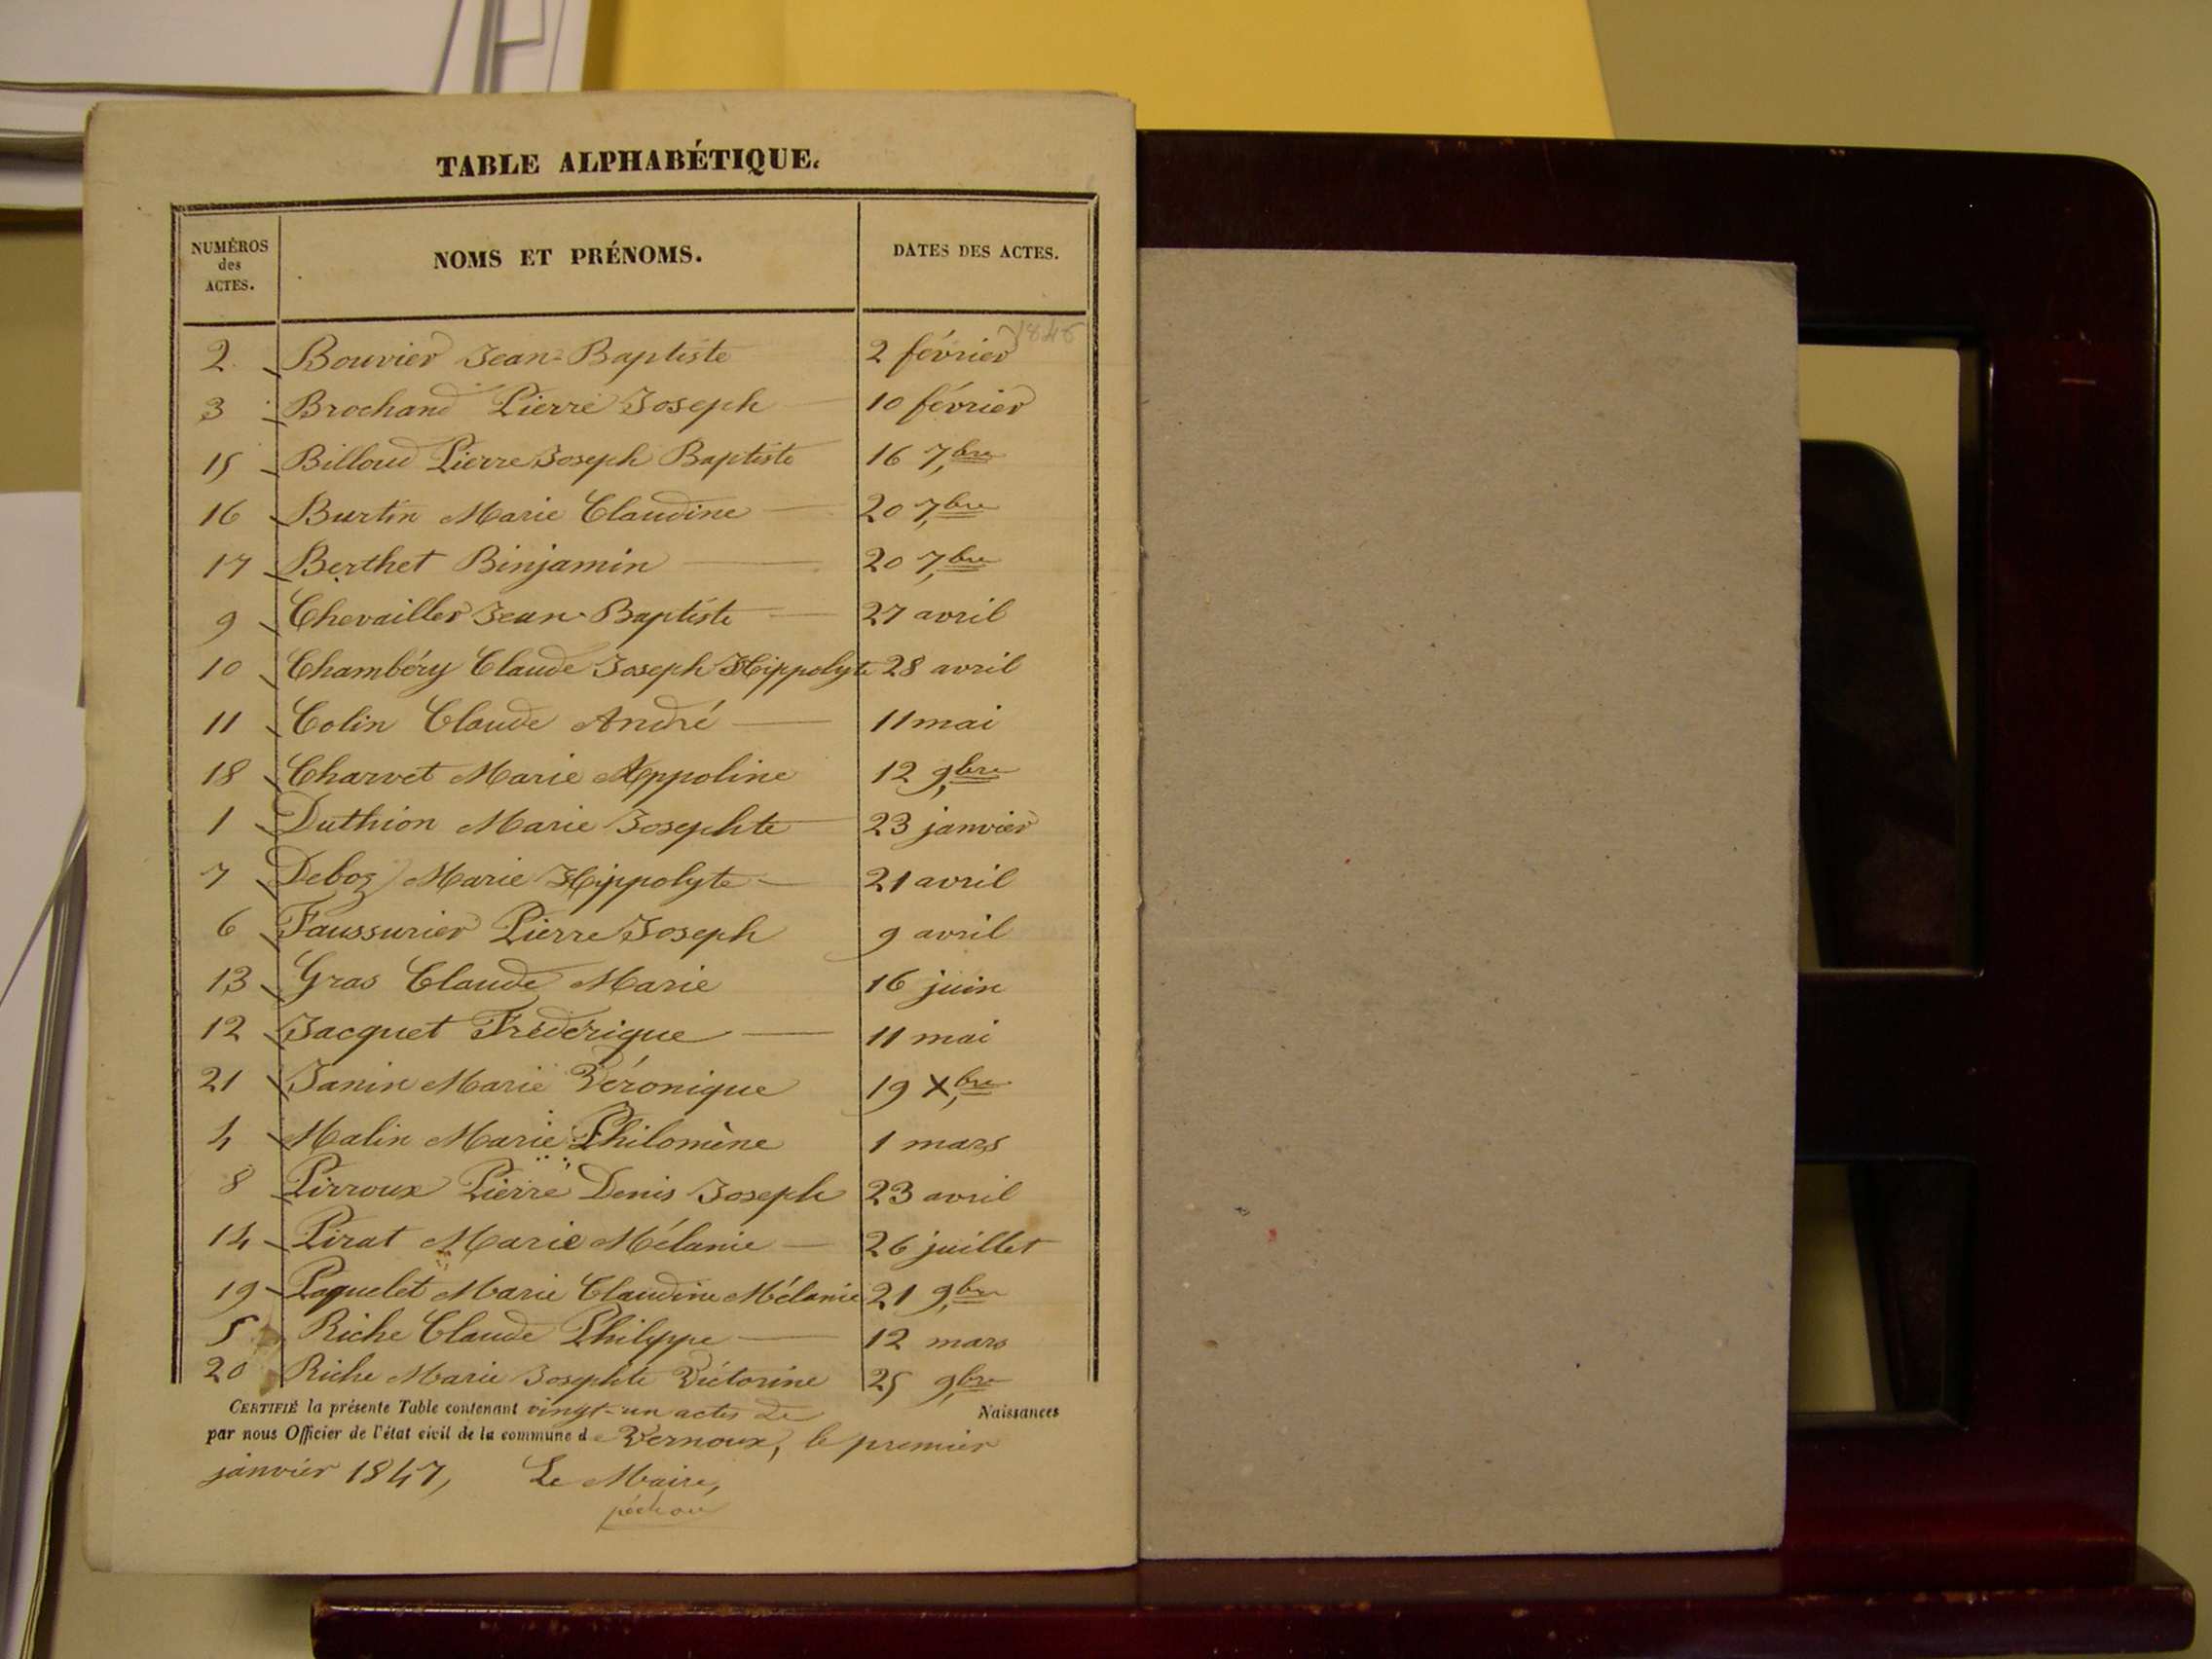 TABLE ALPHABÉTIQUE.
NUMÉROS des ACTES. NOMS ET PRÉNOMS. DATES DES ACTES.
1846
2 Bouvier Jean-Baptiste 2 février
3 Brochand Pierre Joseph 10 février
15 Billoud Pierre Joseph Baptiste 16 7bre
16 Burtin Marie Claudine 20 7bre
17 Berthet Binjamin 20 7bre
9 Chevailler Jean-Baptiste 27 avril
10 Chambéry Claude Joseph Hippolyte 28 avril
11 Colin Claude André 11 mai
18 Charvet Marie Appoline 12 9bre
1 Duthion Marie Josephte 23 janvier
7 Deboz Marie Hippolyte 21 avril
6 Faussurier Pierre Joseph 9 avril
13 Gras Claude Marie 16 juin
12 Jacquet Fréderique 11 mai
21 Janin Marie Véronique 19 Xbre
4 Malin Marie Philomène 1 mars
8 Pirroux Pierre Denis Joseph 23 avril
14 Pirat Marie Mélanie 26 juillet
19 Paquelet Marie Claudine Mélanie 21 9bre
5 Riche Claude Philippe 12 mars
20 Riche Marie Josephte Victorine 25 9bre
CERTIFIÉ la présente Table contenant vingt-un actes de Naissances
par nous Officier de l'état civil de la commune de Vernoux, le premier
janvier 1847, Le Maire,